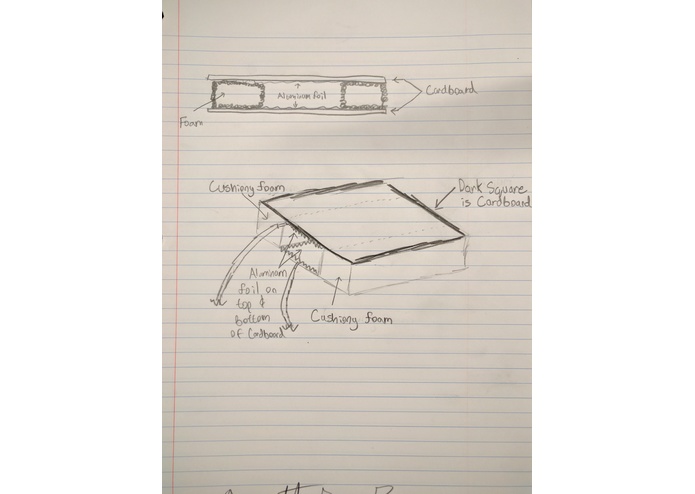 Cardboard
Aluminum foil
Foam
Cushiony foam
Dark Square
is Cardboard
Aluminum
foil on
top &
bottom
of Cardboard
Cushiony foam